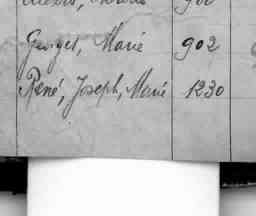 Georges, Marie 902
René, Joseph, Marie 1230